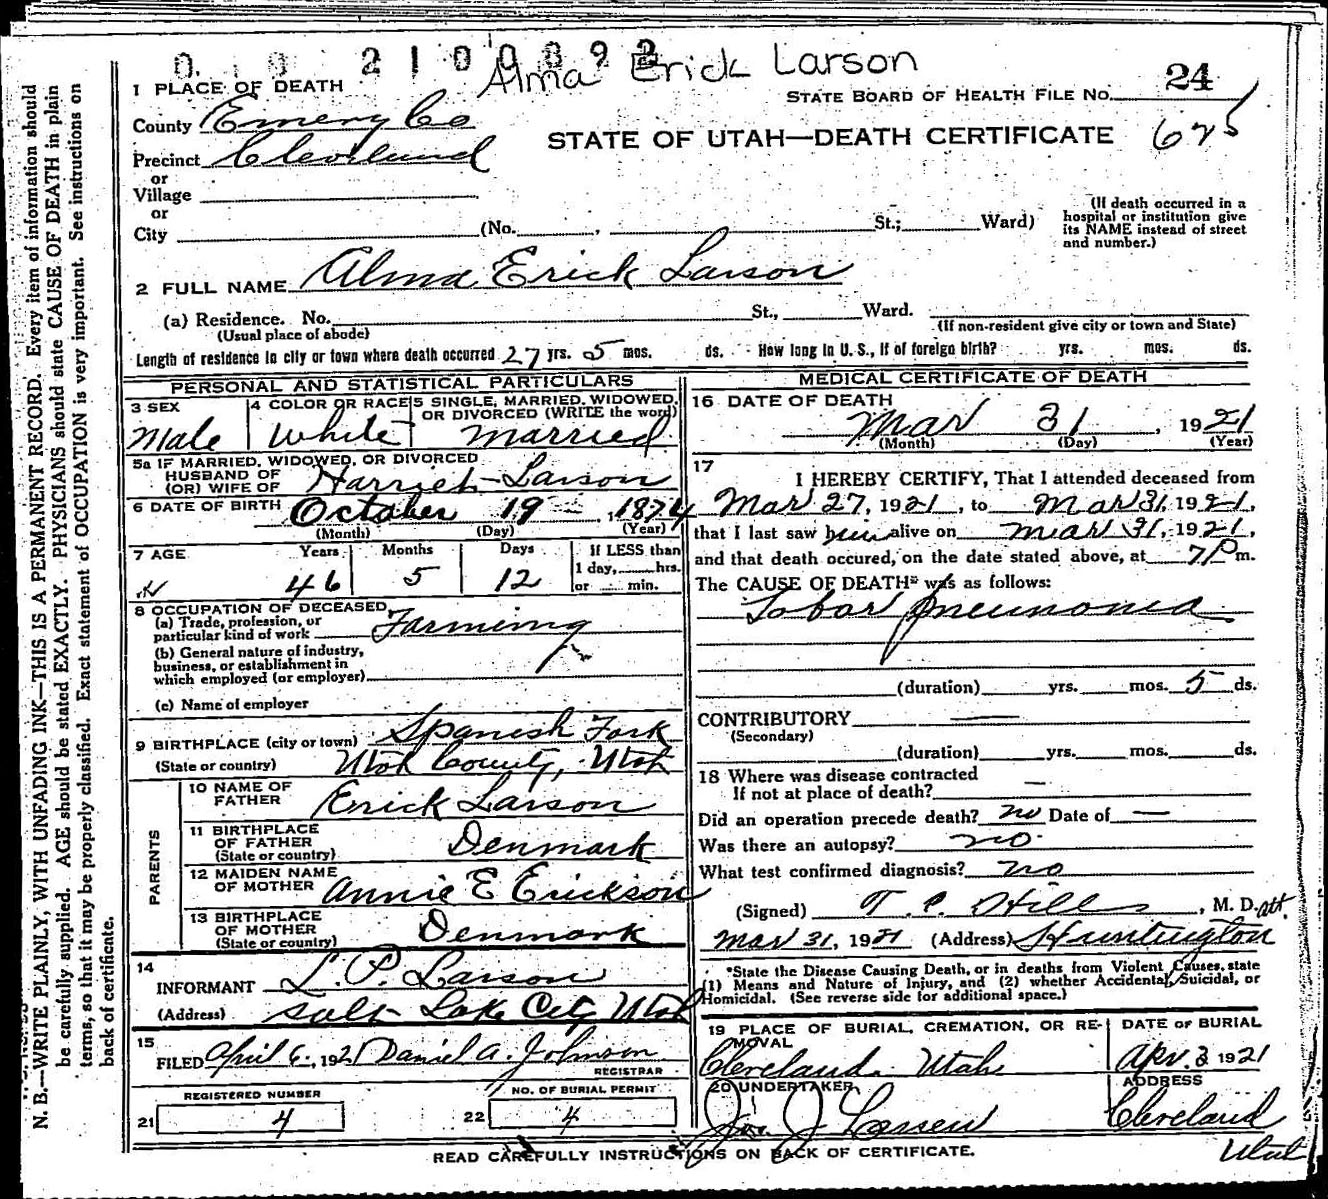 0 1 0 2 1 0 0 8 9 2
Alma Erick Larson
24
1 PLACE OF DEATH
STATE BOARD OF HEALTH FILE No.
County Emery Co
STATE OF UTAH—DEATH CERTIFICATE 625
Precinct Cleveland
or
Village
or
City (No. , St.; Ward)
(If death occurred in a hospital or institution give its NAME instead of street and number.)
2 FULL NAME Alma Erick Larson
(a) Residence. No. St., Ward.
(Usual place of abode) (If non-resident give city or town and State)
Length of residence in city or town where death occurred 27 yrs. 5 mos. ds. How long in U. S., if of foreign birth? yrs. mos. ds.
PERSONAL AND STATISTICAL PARTICULARS
3 SEX Male
4 COLOR OR RACE White
5 SINGLE, MARRIED, WIDOWED, OR DIVORCED (WRITE the word) Married
5a IF MARRIED, WIDOWED, OR DIVORCED
HUSBAND OF
(OR) WIFE OF Harriet Larson
6 DATE OF BIRTH October 19, 1874
(Month) (Day) (Year)
7 AGE Years Months Days If LESS than
1 day, hrs.
46 5 12 or min.
8 OCCUPATION OF DECEASED
(a) Trade, profession, or
particular kind of work Farming
(b) General nature of industry,
business, or establishment in
which employed (or employer)
(c) Name of employer
9 BIRTHPLACE (city or town) Spanish Fork
(State or country) Utah County, Utah
PARENTS
10 NAME OF FATHER Erick Larson
11 BIRTHPLACE OF FATHER (State or country) Denmark
12 MAIDEN NAME OF MOTHER Annie E Erickson
13 BIRTHPLACE OF MOTHER (State or country) Denmark
14
INFORMANT L. P. Larson
(Address) Salt Lake City Utah
15
FILED April 6, 1921 Daniel A. Johnson
REGISTRAR
REGISTERED NUMBER
21 4
NO. OF BURIAL PERMIT
22 4
MEDICAL CERTIFICATE OF DEATH
16 DATE OF DEATH
Mar 31, 1921
(Month) (Day) (Year)
17
I HEREBY CERTIFY, That I attended deceased from
Mar 27, 1921, to Mar 31, 1921,
that I last saw him alive on Mar 31, 1921,
and that death occured, on the date stated above, at 7 P m.
The CAUSE OF DEATH* was as follows:
Lobar pneumonia
(duration) yrs. mos. 5 ds.
CONTRIBUTORY —
(Secondary)
(duration) yrs. mos. ds.
18 Where was disease contracted
If not at place of death? —
Did an operation precede death? no Date of —
Was there an autopsy? no
What test confirmed diagnosis? no
(Signed) T. C. Hill, M. D. att.
Mar 31, 1921 (Address) Huntington
*State the Disease Causing Death, or in deaths from Violent Causes, state
(1) Means and Nature of Injury, and (2) whether Accidental, Suicidal, or
Homicidal. (See reverse side for additional space.)
19 PLACE OF BURIAL, CREMATION, OR RE-
MOVAL
Cleveland Utah
DATE OF BURIAL
Apr. 3 1921
20 UNDERTAKER
Jos. J Larsen
ADDRESS
Cleveland
Utah
READ CAREFULLY INSTRUCTIONS ON BACK OF CERTIFICATE.
N. B.—WRITE PLAINLY, WITH UNFADING INK—THIS IS A PERMANENT RECORD. Every item of information should
be carefully supplied. AGE should be stated EXACTLY. PHYSICIANS should state CAUSE OF DEATH in plain
terms, so that it may be properly classified. Exact statement of OCCUPATION is very important. See instructions on
back of certificate.